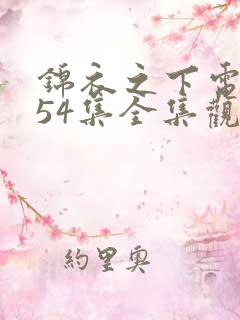 錦衣之下電
54集全集觀
約里奧